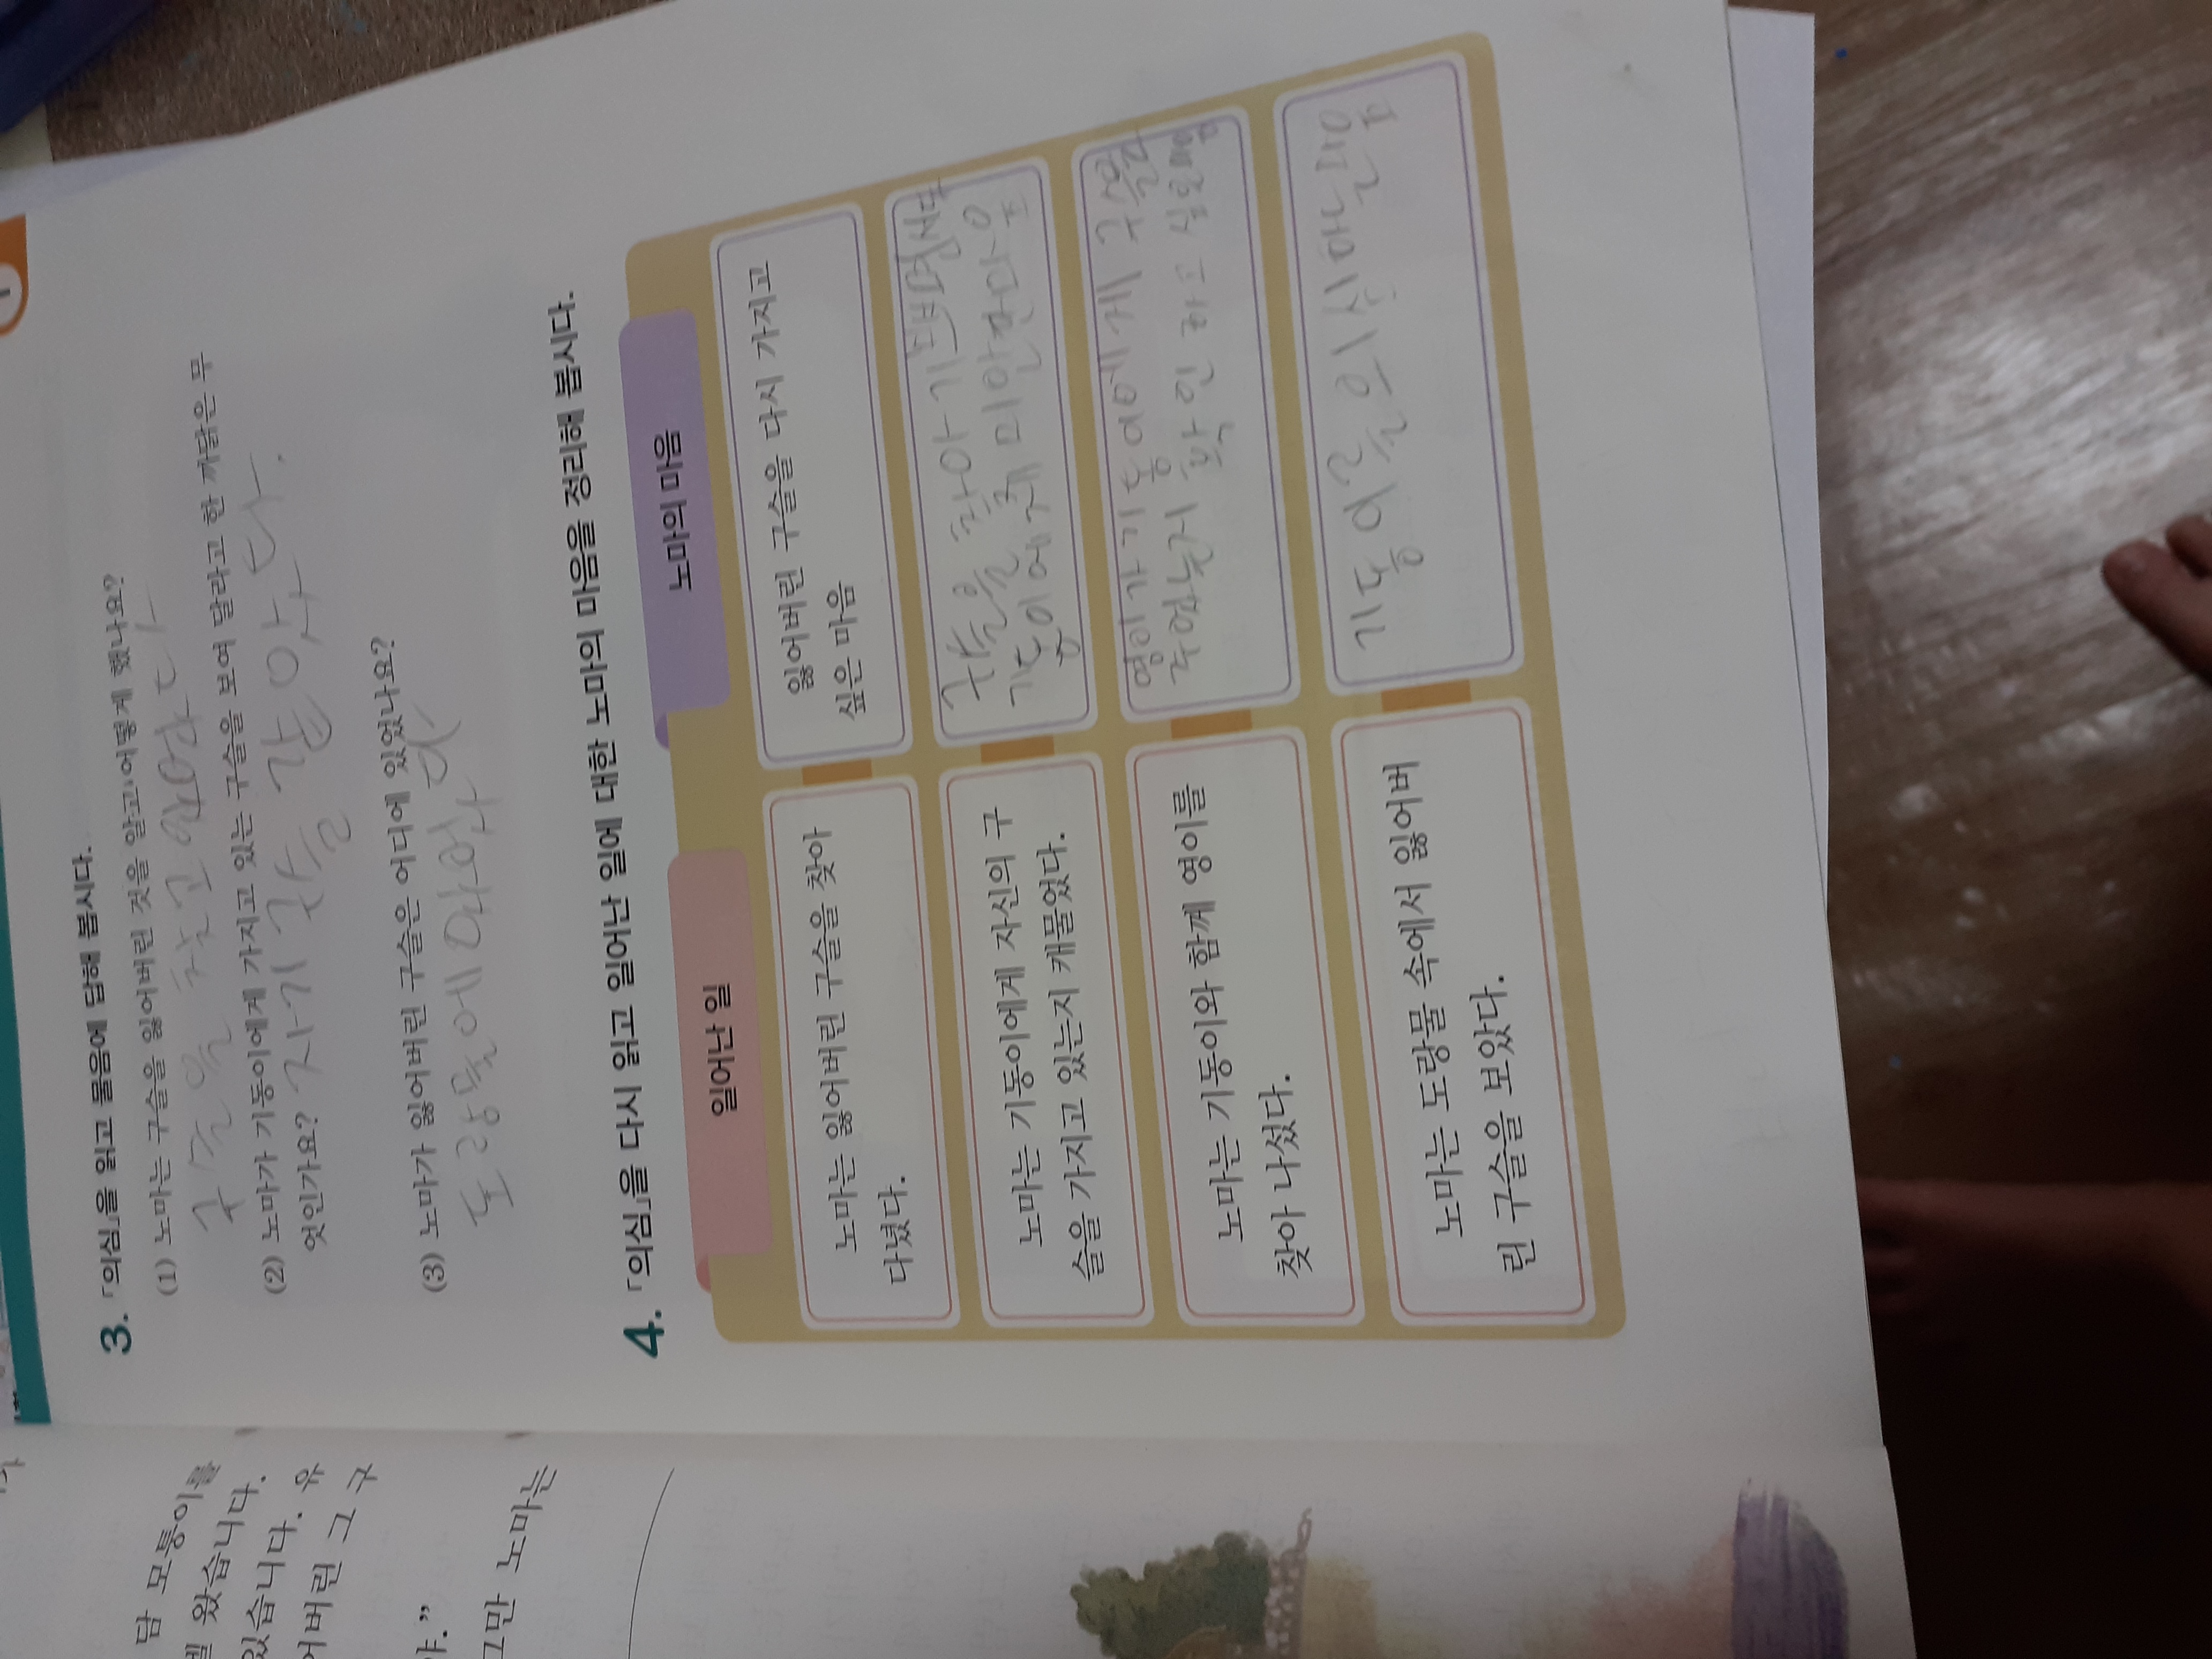 3. 「의심」을 읽고 물음에 답해 봅시다.
(1) 노마는 구슬을 잃어버린 것을 알고 어떻게 했나요?
구슬을 찾고 있었다
(2) 노마가 기동이에게 가지고 있는 구슬을 보여 달라고 한 까닭은 무
엇인가요? 자기 구슬 같아서다.
(3) 노마가 잃어버린 구슬은 어디에 있었나요?
도랑물에
4. 「의심」을 다시 읽고 일어난 일에 대한 노마의 마음을 정리해 봅시다.
일어난 일
노마의 마음
노마는 잃어버린 구슬을 찾아
다녔다.
잃어버린 구슬을 다시 가지고
싶은 마음
노마는 기동이에게 자신의 구
슬을 가지고 있는지 캐물었다.
구슬을 찾아 기쁘면서도
기동이에게 미안한 마음
노마는 기동이와 함께 영이를
찾아 나섰다.
영이가 기동이에게 구슬을
주었는지 확인하고 싶은 마음
노마는 도랑물 속에서 잃어버
린 구슬을 보았다.
기동이를 의심하는 마음
담 모퉁이를
왔습니다.
있습니다. 유
어버린 그 구
야.”
그만 노마는